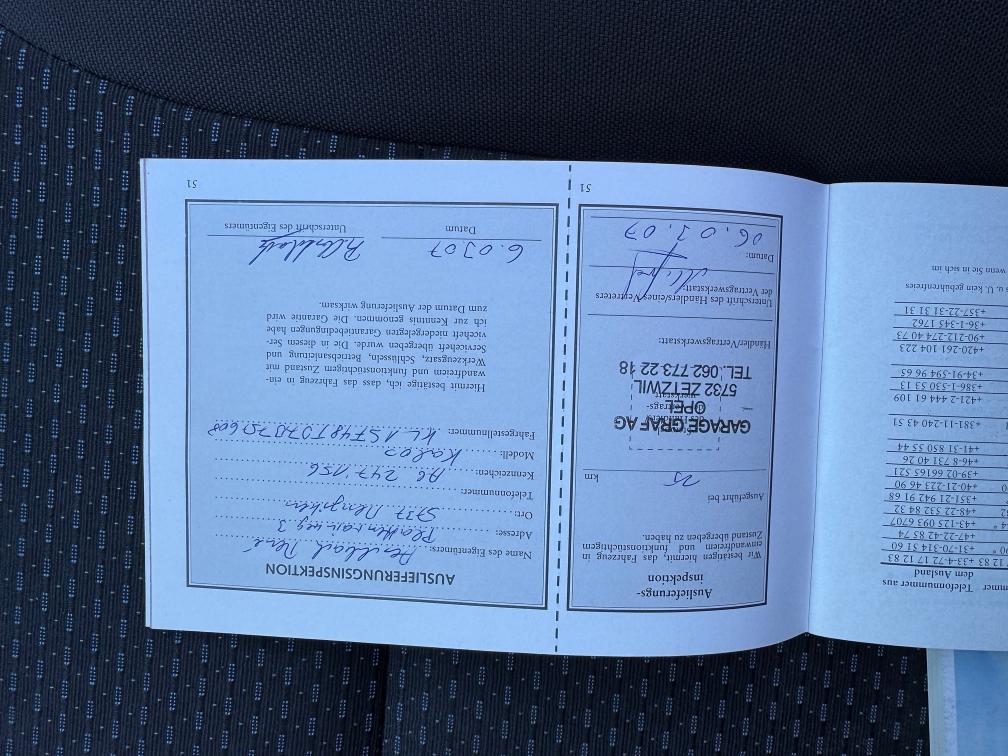 Telefonnummer aus
dem Ausland
+33-4-72 17 12 83
+31-70-314 51 60
+47-22-42 85 74
+43-125 093 6707
+48-22 532 84 32
+351-21 942 91 68
+40-21-223 46 90
+39-02 66165 521
+46-8-731 40 26
+41-31 850 55 44
+381-11-240 43 51
+421-2-444 61 109
+386-1-530 53 13
+34-91-594 96 65
+420-261 104 223
+90-212-274 40 73
+36-1-345 1762
+357-22-31 31 31
u. U. kein gebührenfreies
wenn Sie in sich im
Auslieferungs-
inspektion
Wir bestätigen hiermit, das Fahrzeug in
einwandfreiem und funktionstüchtigem
Zustand übergeben zu haben.
Ausgeführt bei
km
GARAGE GRAF AG
OPEL
5732 ZETZWIL
TEL. 062 773 22 18
Händler/Vertragswerkstatt:
Unterschrift des Händlers/eines Vertreters
der Vertragswerkstatt:
Datum:
06.03.07
51
AUSLIEFERUNGSINSPEKTION
Name des Eigentümers: René
Adresse: 3
Ort: 5737 Menziken
Telefonnummer:
Kennzeichen: AG 247'156
Modell: Kalos
Fahrgestellnummer:
Hiermit bestätige ich, dass das Fahrzeug in ein-
wandfreiem und funktionstüchtigem Zustand mit
Werkzeugsatz, Schlüsseln, Betriebsanleitung und
Serviceheft übergeben wurde. Die in diesem Ser-
viceheft niedergelegten Garantiebedingungen habe
ich zur Kenntnis genommen. Die Garantie wird
zum Datum der Auslieferung wirksam.
6.0307
Datum
Unterschrift des Eigentümers
51